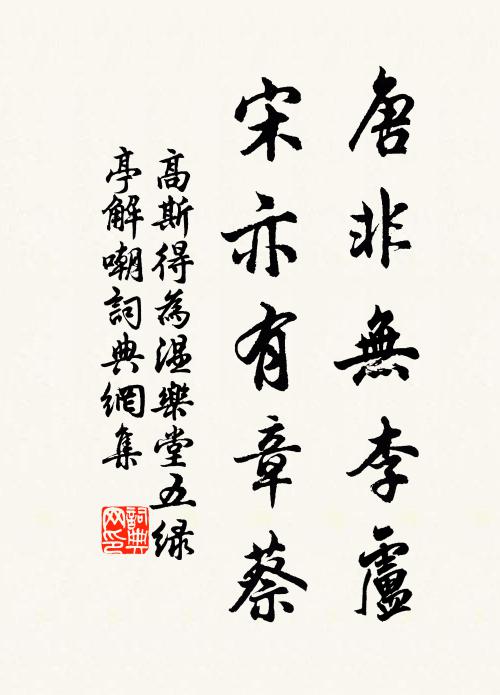 唐非無李盧
宋亦有章蔡
高斯得為湿樂堂五绿
亭解嘲詞典網集
詞典網印